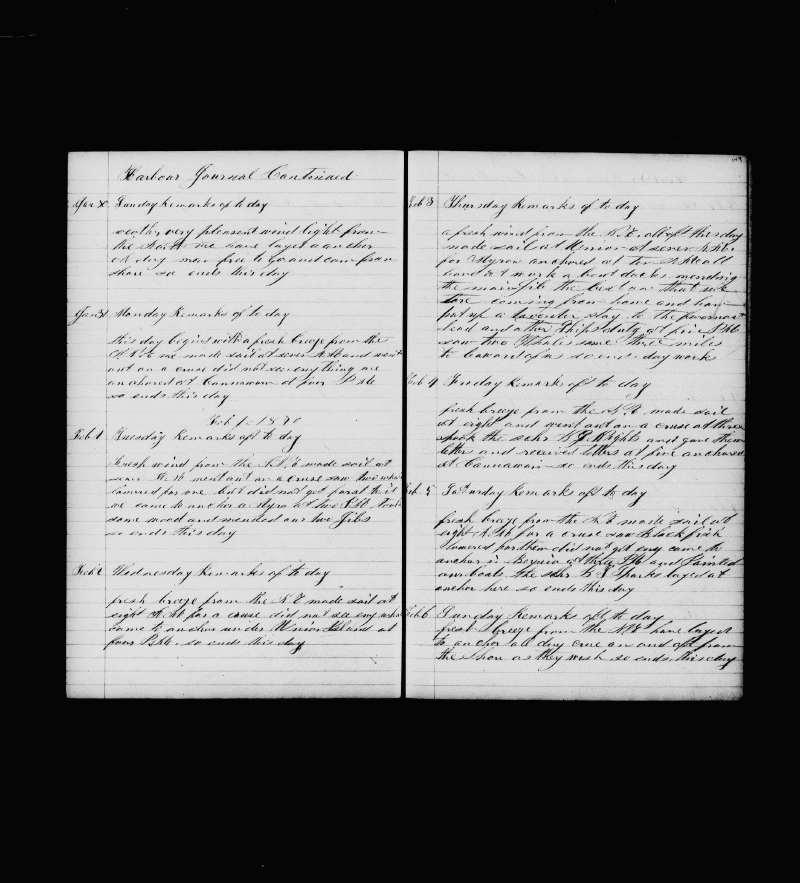 Harbour Journal Continued
Jan 30 Sunday Remarks of to day
weather very pleasent wind light from
the North we have layed a anchor
all day men free to go and com from
shore so ends this day
Jan 31 Monday Remarks of to day
this day begins with a fresh breze from the
N.E we made sail at seven AM and went
out on a cruse did not see enything we
anchored at Cannawan at four P M
so ends this day
Feb 1 - 1870
Feb 1 Tuesday Remarks off to day
Fresh wind from the N.E made sail at
seven A.M went out on a cruse saw two whales
lowered for one but did not get farst to it
we came to anchor a Myro at two P.M. Took
some wood and mended our two Jibs
so ends this day
Feb 2 Wednesday Remarks of to day
fresh breze from the N.E made sail at
eight A.M for a cruse did not see eny whales
came to anchor under Island at
four P.M. so ends this day
Feb 3 Thursday Remarks of to day
a fresh wind from the N.E. all of this day
made sail at at seven A.M.
for Myrow anchored at ten A.M all
hand at work a bout docks mending
the main jib the best on that we
tore comsing from home and have
put up a stay to the foremast
head and other Ships duty at five P.M.
saw two Whales some three miles
to leward of us so ends day works
Feb 4 Friday Remarks off to day
fresh breze from the N.E. made sail
at eight and went out on a cruse at three
spook the schr and gave them
letters and received letters at five anchored
at Cannawan so ends this day
Feb 5 Saturday Remarks off to day
fresh breze from the N.E made sail at
eight A.M for a cruse saw Black fish
lowered for them did not get eny came to
anchor in at three P.M and Painted
our boats the schr layed at
anchor here so ends this day
Feb 6 Sunday Remarks off to day
breze from the N.E have layed
to anchor all day crue on and off from
the Shore as they wish so ends this day